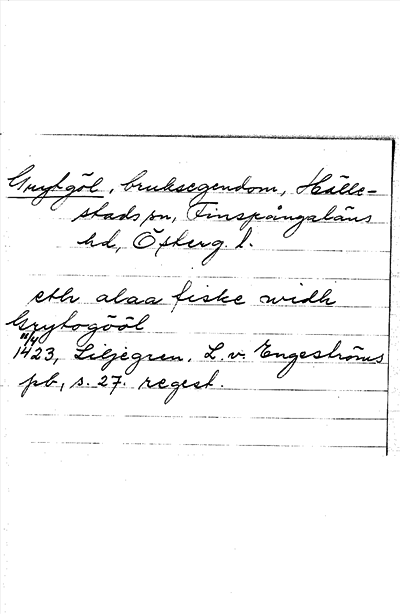 Grytgöl, bruksegendom, Hälle-
stads sn, Finspångaläns
hd, Österg. l.
eth alaa fiske widh
Grytogööl
1423, Liljegren. L. v. Engeströms
pb, s. 27. regest.